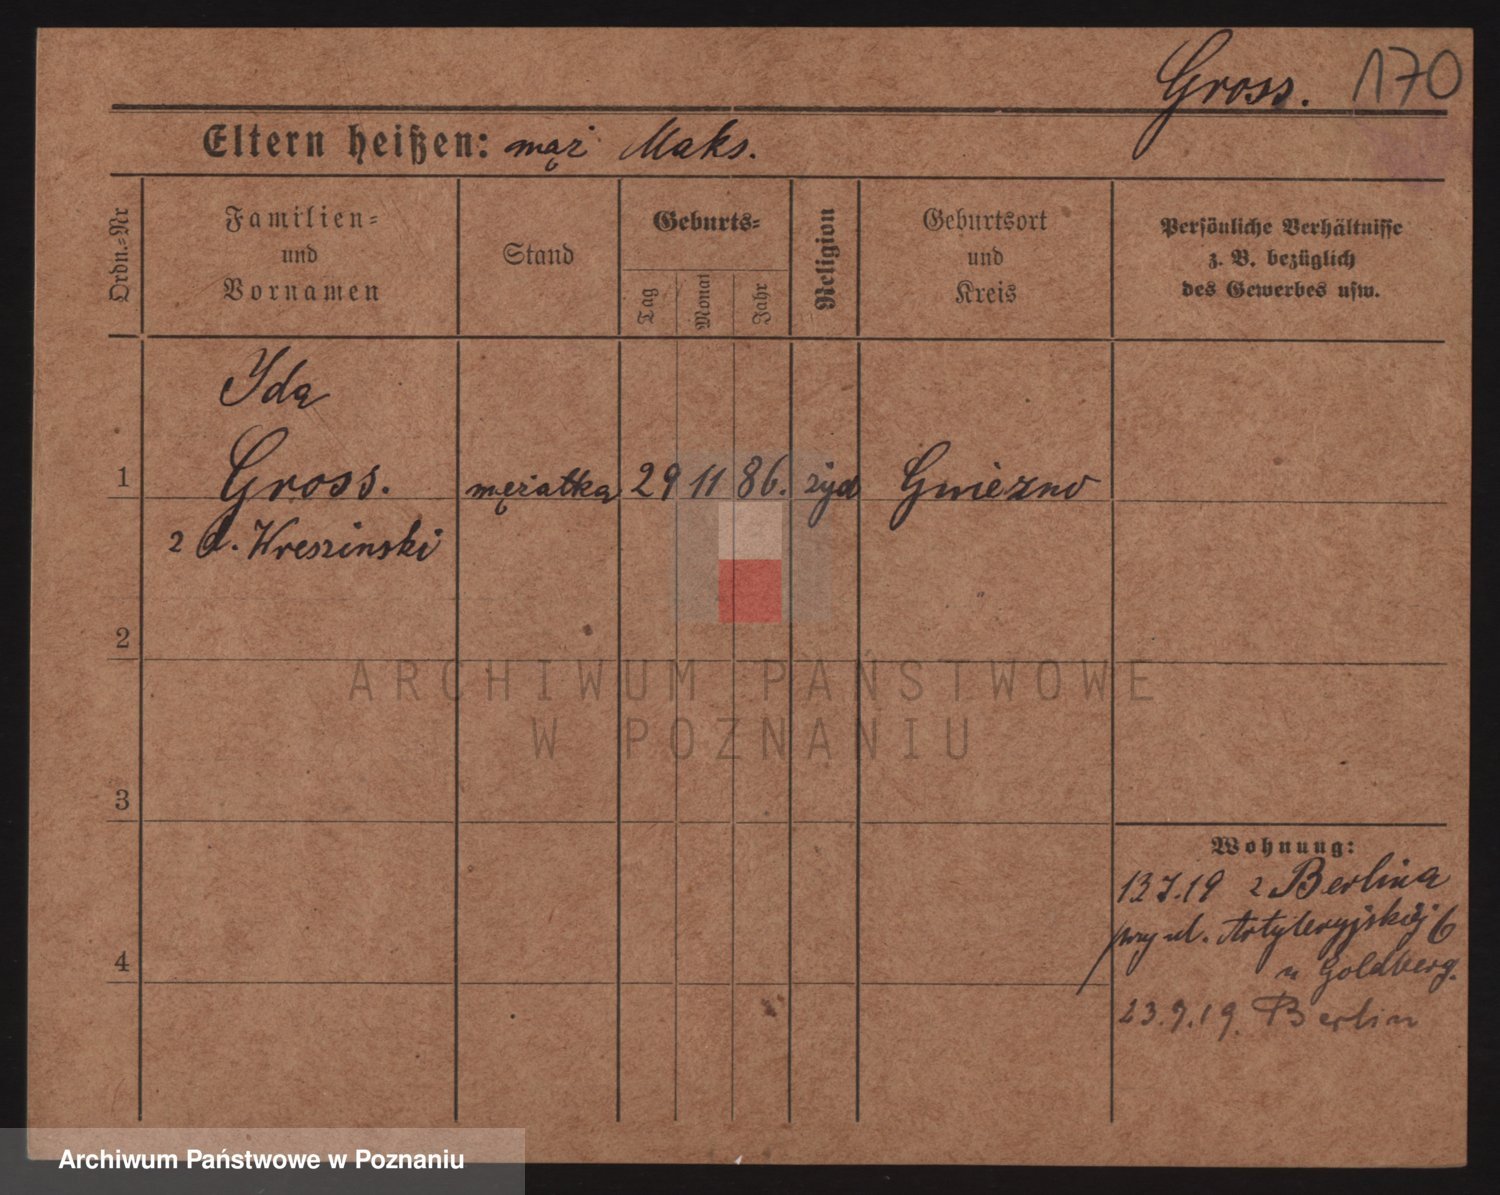 Gross. 170
Eltern heißen: mąż Maks.
Ordn.=Nr
Familien=
und
Vornamen
Stand
Geburts=
Tag
Monat
Jahr
Religion
Geburtsort
und
Kreis
Persönliche Verhältnisse
z. B. bezüglich
des Gewerbes usw.
Ida
1 Gross. mężatka 29 11 86. żyd Gniezno
z d. Wreszinski
2
3
4
Wohnung:
13.7.19 z Berlina
przy ul. Artyleryjskiej 6
u Goldberg.
23.9.19. Berlin
ARCHIWUM PAŃSTWOWE
W POZNANIU
Archiwum Państwowe w Poznaniu